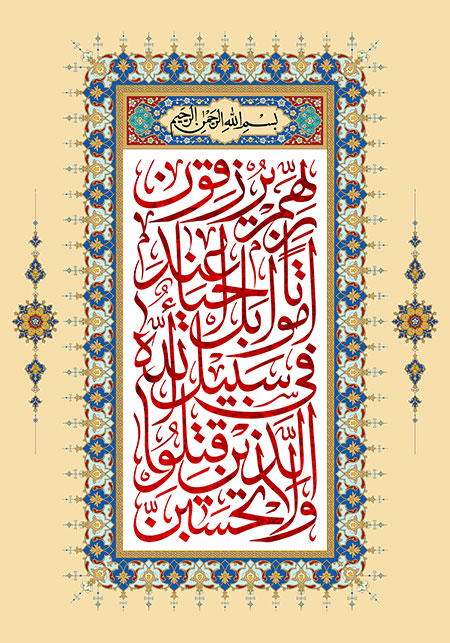 بسم الله الرحمن الرحيم
ولا تحسبن
الذين قتلوا
في سبيل الله
أمواتاً بل أحياءٌ عند
ربهم يرزقون